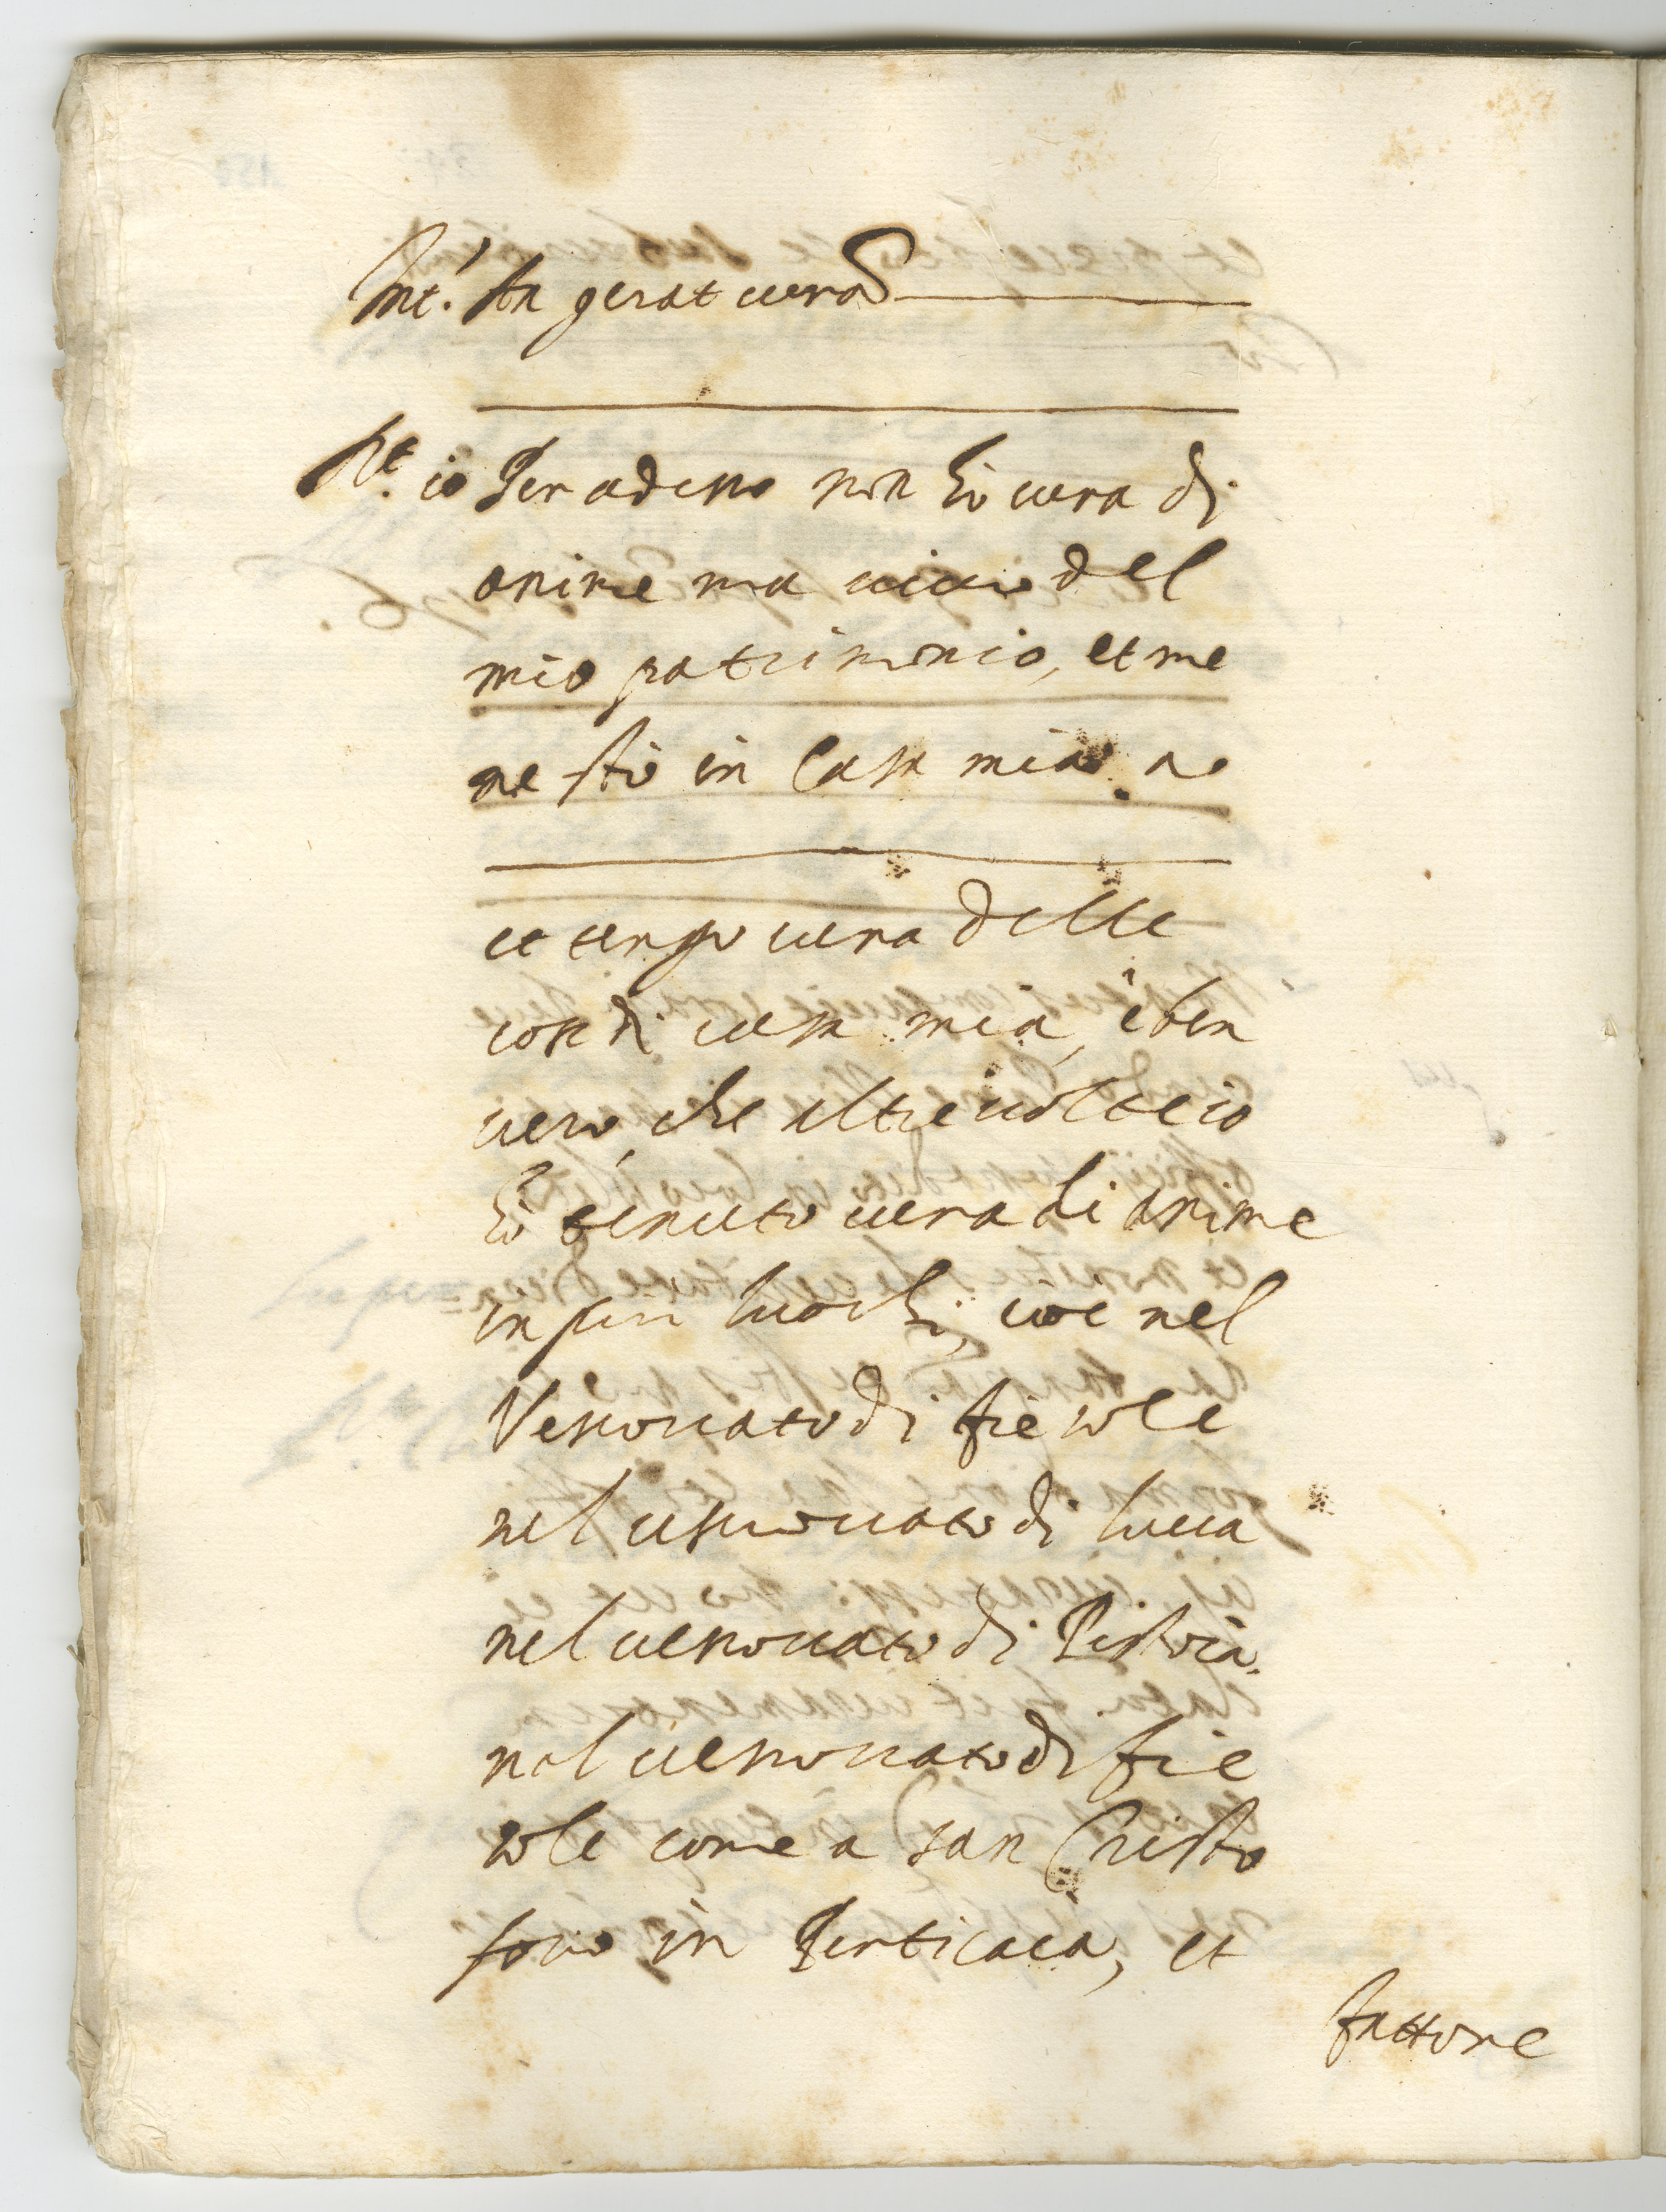 Int.' An gerat cura
R.t io Per adesso non hò cura di
anime ma vivo del
mio patrimonio, et me
ne stò in Casa mia
et tengo cura delle
cose di casa mia, è ben
vero, che altre volte io
hò tenuto cura di anime
in più luochi, cioe nel
Vescovato di fiesole
nel vescovato di lucca
nel vescovato di Pistoia.
nel vescovato di fie
sole come a san Cristo
foro in Perticaia, et
fattore